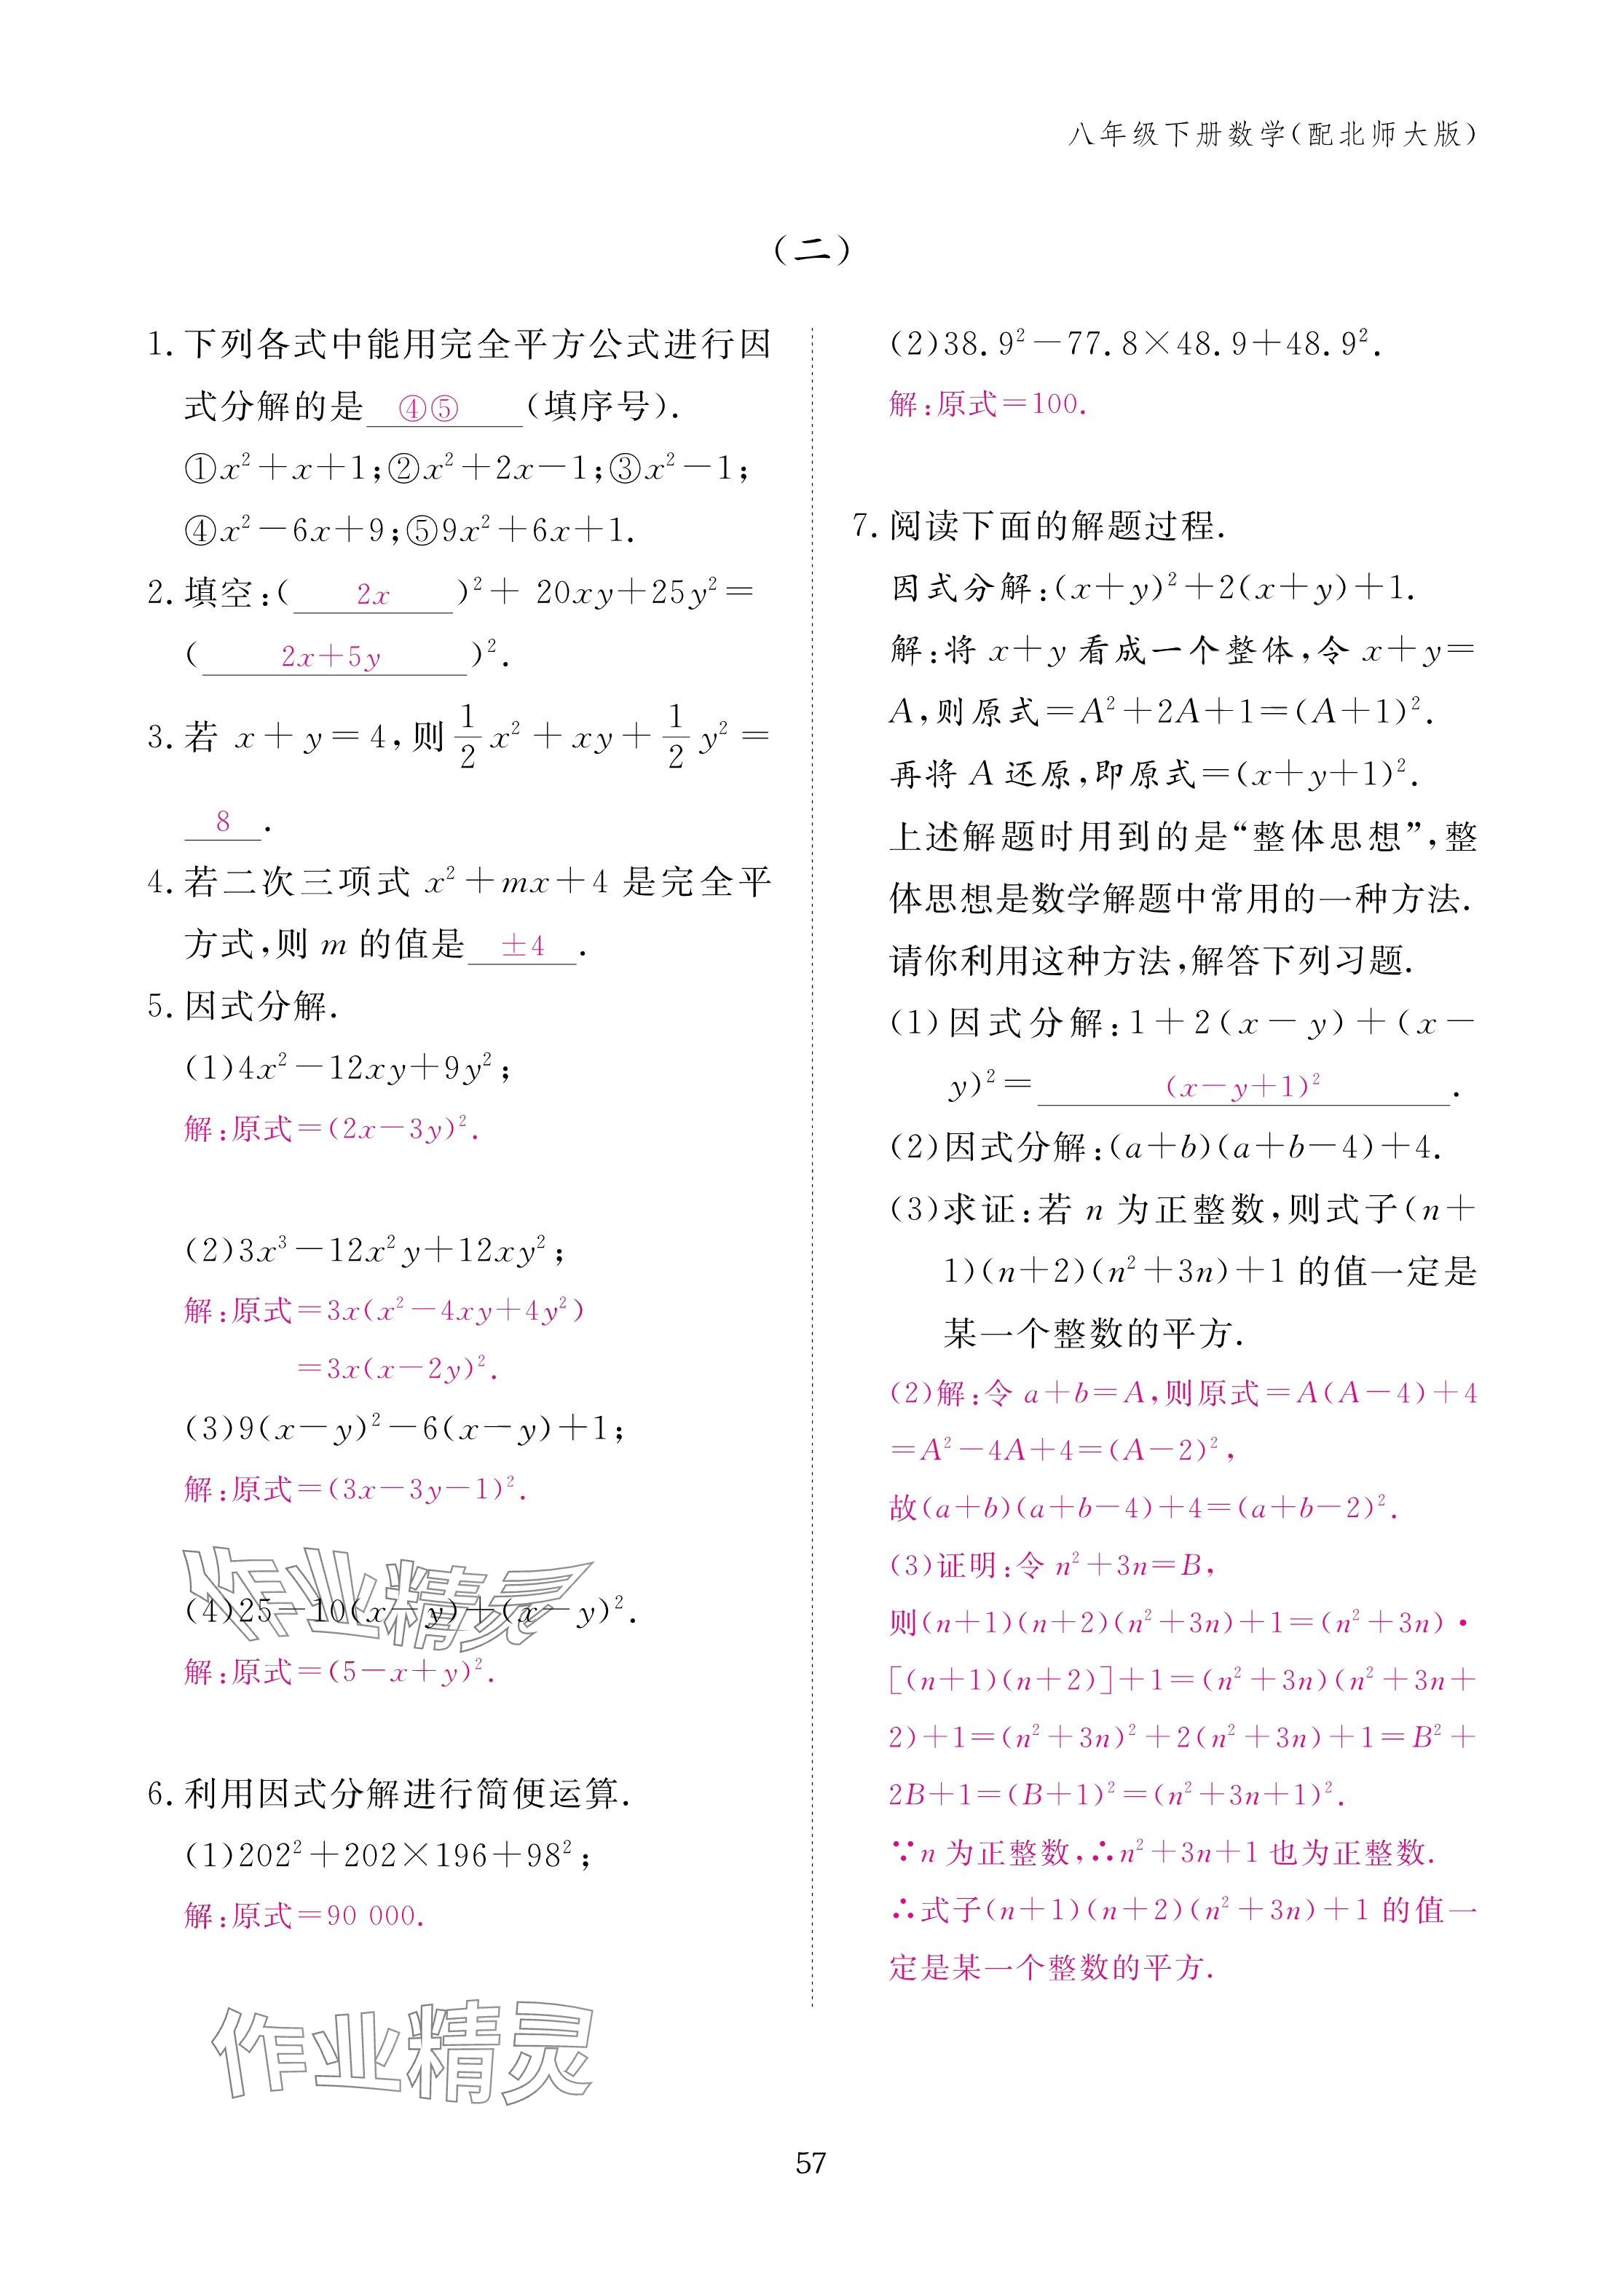 八年级下册数学(配北师大版)
(二)
1. 下列各式中能用完全平方公式进行因
式分解的是 ④⑤ (填序号).
①x²+x+1;②x²+2x-1;③x²-1;
④x²-6x+9;⑤9x²+6x+1.
2. 填空:( 2x )²+ 20xy+25y²=
( 2x+5y )².
3. 若 x+y=4,则 1/2 x²+xy+ 1/2 y²=
8 .
4. 若二次三项式 x²+mx+4 是完全平
方式,则 m 的值是 ±4 .
5. 因式分解.
(1)4x²-12xy+9y²;
解:原式=(2x-3y)².
(2)3x³-12x²y+12xy²;
解:原式=3x(x²-4xy+4y²)
=3x(x-2y)².
(3)9(x-y)²-6(x-y)+1;
解:原式=(3x-3y-1)².
作业精灵
(4)25-10(x-y)+(x-y)².
解:原式=(5-x+y)².
6. 利用因式分解进行简便运算.
(1)202²+202×196+98²;
解:原式=90 000.
作业精灵
(2)38.9²-77.8×48.9+48.9².
解:原式=100.
7. 阅读下面的解题过程.
因式分解:(x+y)²+2(x+y)+1.
解:将 x+y 看成一个整体,令 x+y=
A,则原式=A²+2A+1=(A+1)².
再将 A 还原,即原式=(x+y+1)².
上述解题时用到的是“整体思想”,整
体思想是数学解题中常用的一种方法.
请你利用这种方法,解答下列习题.
(1)因式分解:1+2(x-y)+(x-
y)²= (x-y+1)² .
(2)因式分解:(a+b)(a+b-4)+4.
(3)求证:若 n 为正整数,则式子(n+
1)(n+2)(n²+3n)+1 的值一定是
某一个整数的平方.
(2)解:令 a+b=A,则原式=A(A-4)+4
=A²-4A+4=(A-2)²,
故(a+b)(a+b-4)+4=(a+b-2)².
(3)证明:令 n²+3n=B,
则(n+1)(n+2)(n²+3n)+1=(n²+3n)·
[(n+1)(n+2)]+1=(n²+3n)(n²+3n+
2)+1=(n²+3n)²+2(n²+3n)+1=B²+
2B+1=(B+1)²=(n²+3n+1)².
∵n 为正整数,∴n²+3n+1 也为正整数.
∴式子(n+1)(n+2)(n²+3n)+1 的值一
定是某一个整数的平方.
57